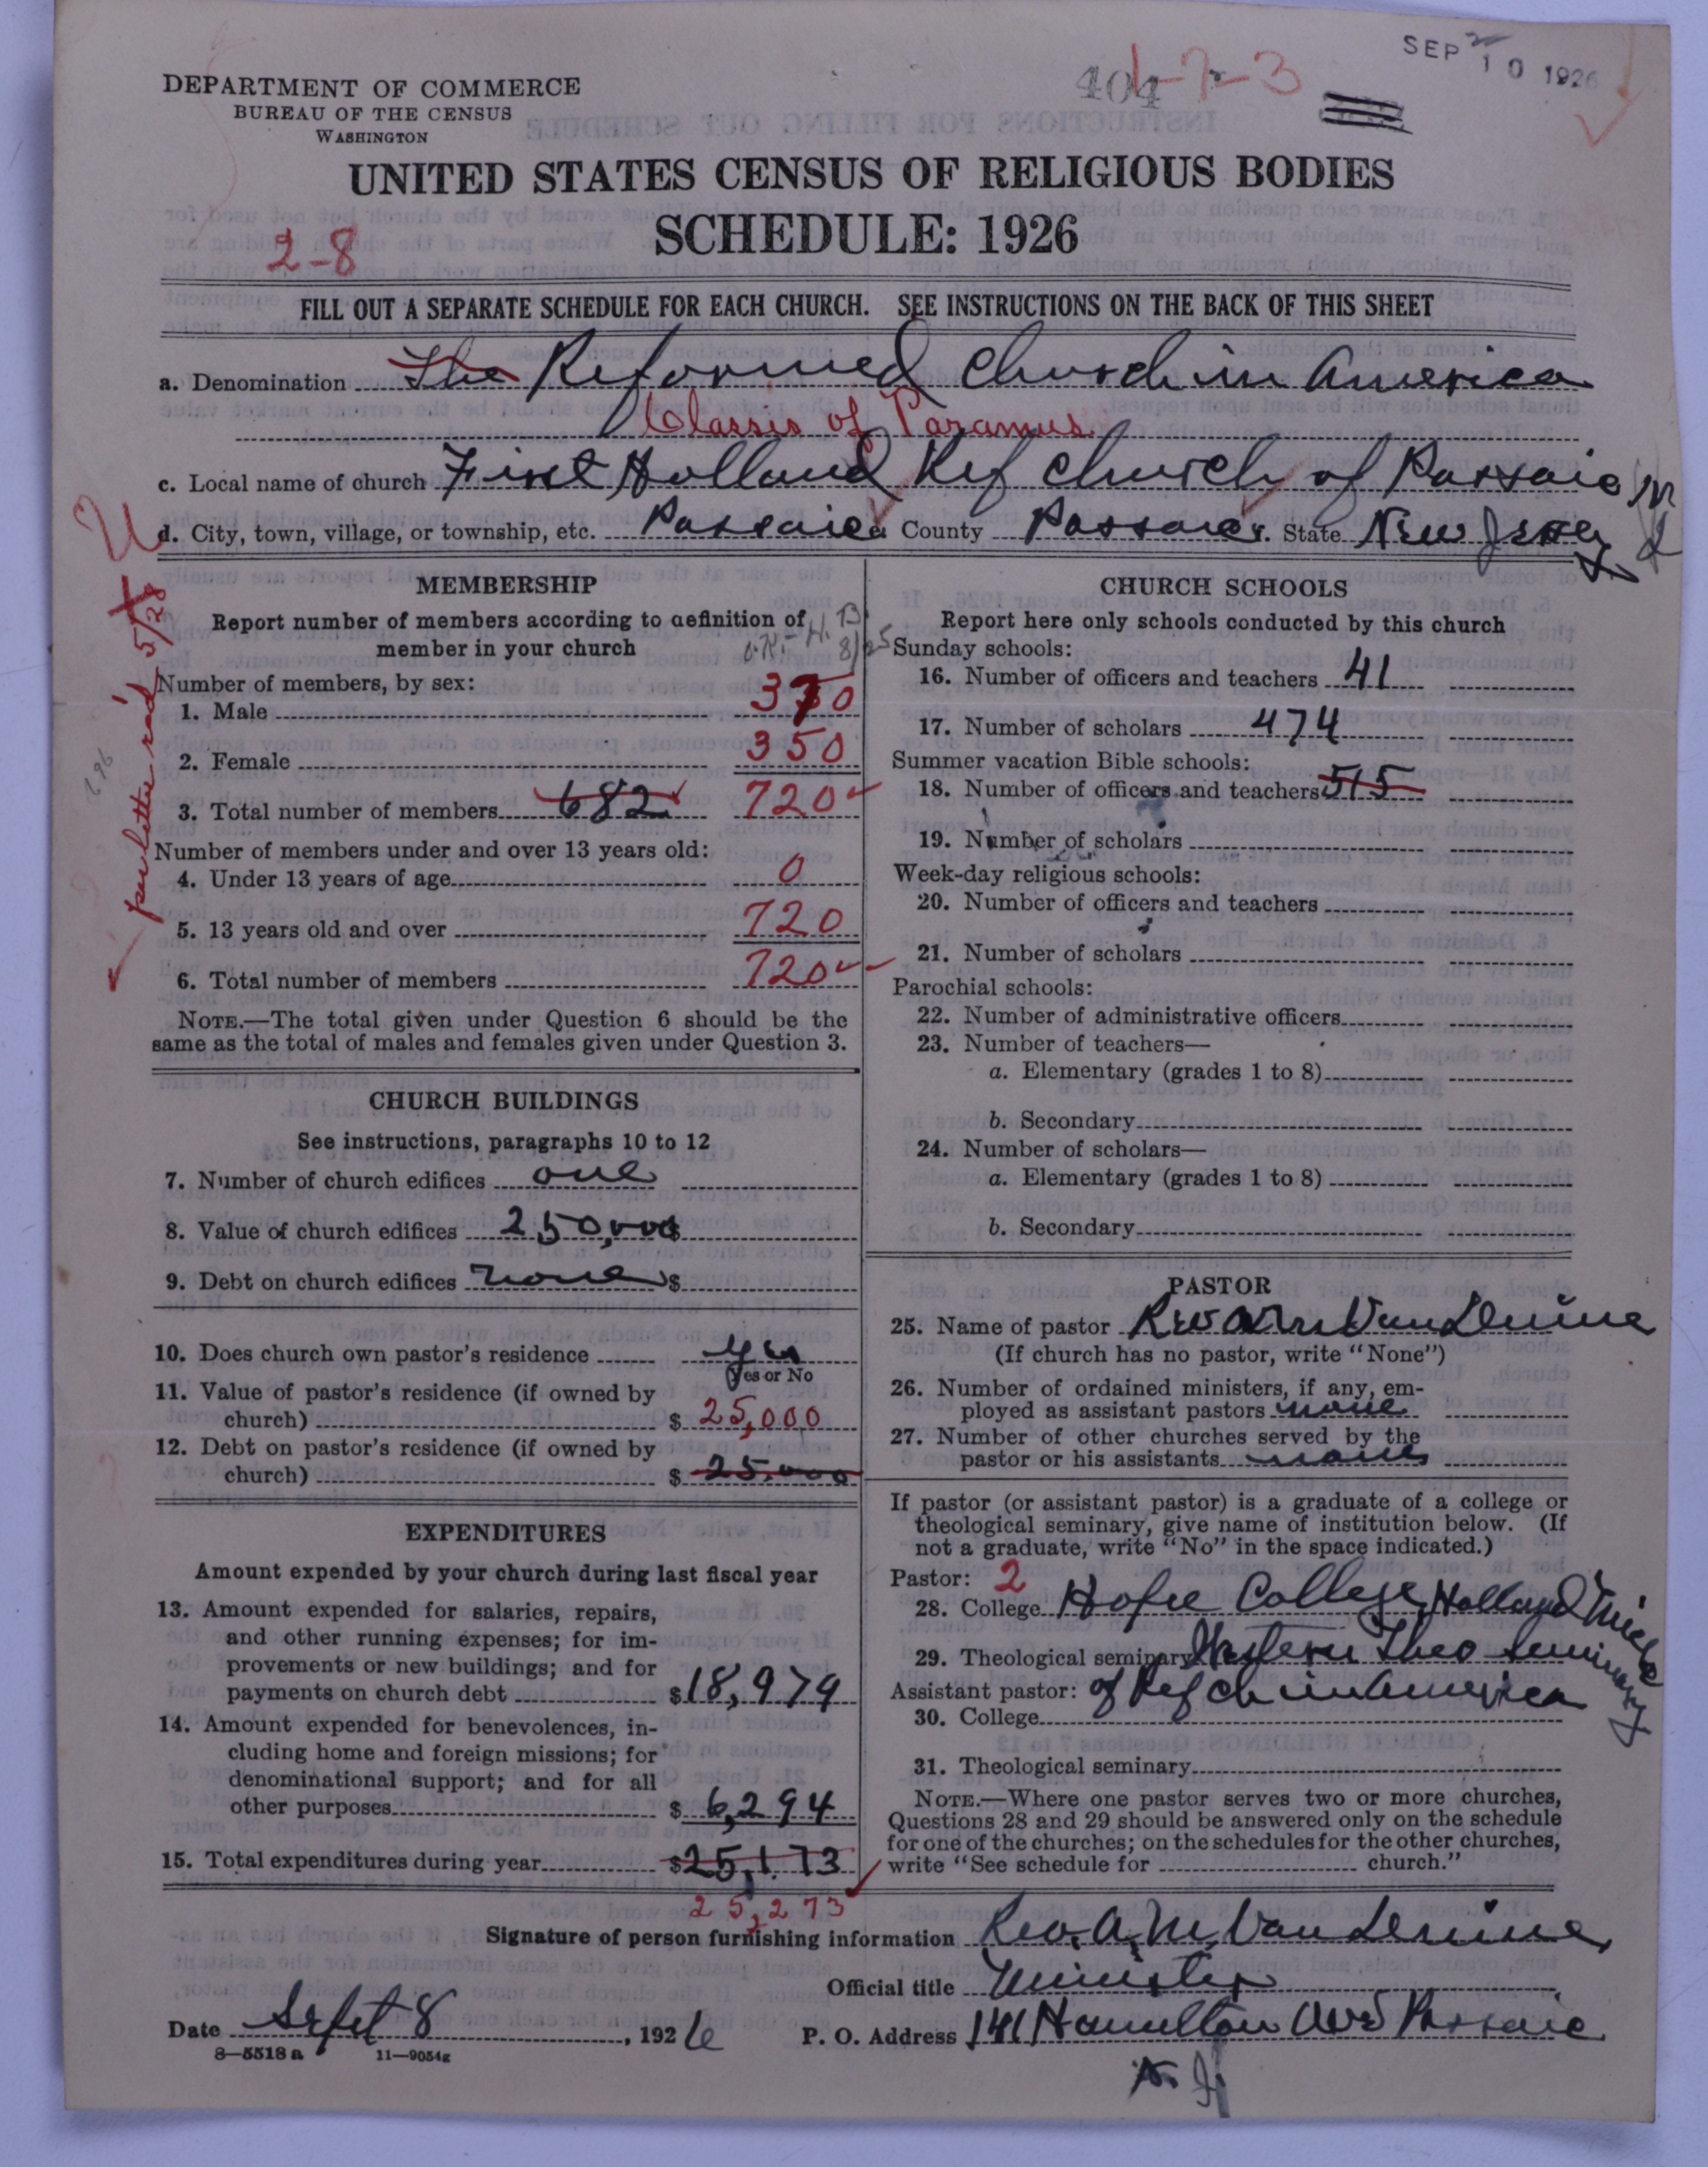 SEP 10 1926
404 1-7-3
DEPARTMENT OF COMMERCE
BUREAU OF THE CENSUS
WASHINGTON
UNITED STATES CENSUS OF RELIGIOUS BODIES
SCHEDULE: 1926
2-8
FILL OUT A SEPARATE SCHEDULE FOR EACH CHURCH. SEE INSTRUCTIONS ON THE BACK OF THIS SHEET
a. Denomination The Reformed Church in America
Classis of Paramus
c. Local name of church First Holland Ref Church of Passaic N J
d. City, town, village, or township, etc. Passaic County Passaic State New Jersey
per letter rec'd 5/28
MEMBERSHIP
Report number of members according to definition of
member in your church
O.K.- H.B. 8/25
Number of members, by sex:
1. Male 370
2. Female 350
3. Total number of members 682 720
Number of members under and over 13 years old:
4. Under 13 years of age 0
5. 13 years old and over 720
6. Total number of members 720
NOTE.—The total given under Question 6 should be the
same as the total of males and females given under Question 3.
CHURCH BUILDINGS
See instructions, paragraphs 10 to 12
7. Number of church edifices one
8. Value of church edifices 250,000 $
9. Debt on church edifices none $
10. Does church own pastor's residence yes
Yes or No
11. Value of pastor's residence (if owned by
church) $ 25,000
12. Debt on pastor's residence (if owned by
church) $ 25,000
EXPENDITURES
Amount expended by your church during last fiscal year
13. Amount expended for salaries, repairs,
and other running expenses; for im-
provements or new buildings; and for
payments on church debt $ 18,979
14. Amount expended for benevolences, in-
cluding home and foreign missions; for
denominational support; and for all
other purposes $ 6,294
15. Total expenditures during year $ 25,173
25,273
CHURCH SCHOOLS
Report here only schools conducted by this church
Sunday schools:
16. Number of officers and teachers 41
17. Number of scholars 474
Summer vacation Bible schools:
18. Number of officers and teachers 515
19. Number of scholars
Week-day religious schools:
20. Number of officers and teachers
21. Number of scholars
Parochial schools:
22. Number of administrative officers
23. Number of teachers—
a. Elementary (grades 1 to 8)
b. Secondary
24. Number of scholars—
a. Elementary (grades 1 to 8)
b. Secondary
PASTOR
25. Name of pastor Rev A M Van Duine
(If church has no pastor, write "None")
26. Number of ordained ministers, if any, em-
ployed as assistant pastors none
27. Number of other churches served by the
pastor or his assistants none
If pastor (or assistant pastor) is a graduate of a college or
theological seminary, give name of institution below. (If
not a graduate, write "No" in the space indicated.)
Pastor: 2
28. College Hope College, Holland Mich
29. Theological seminary Western Theo Seminary
Assistant pastor: of Ref Ch in America
30. College
31. Theological seminary
NOTE.—Where one pastor serves two or more churches,
Questions 28 and 29 should be answered only on the schedule
for one of the churches; on the schedules for the other churches,
write "See schedule for church."
Signature of person furnishing information Rev. A. M. Van Duine
Official title Minister
Date Sept 8, 1926 P. O. Address 141 Hamilton Ave Passaic
N. J.
8—5518 a 11—9054g